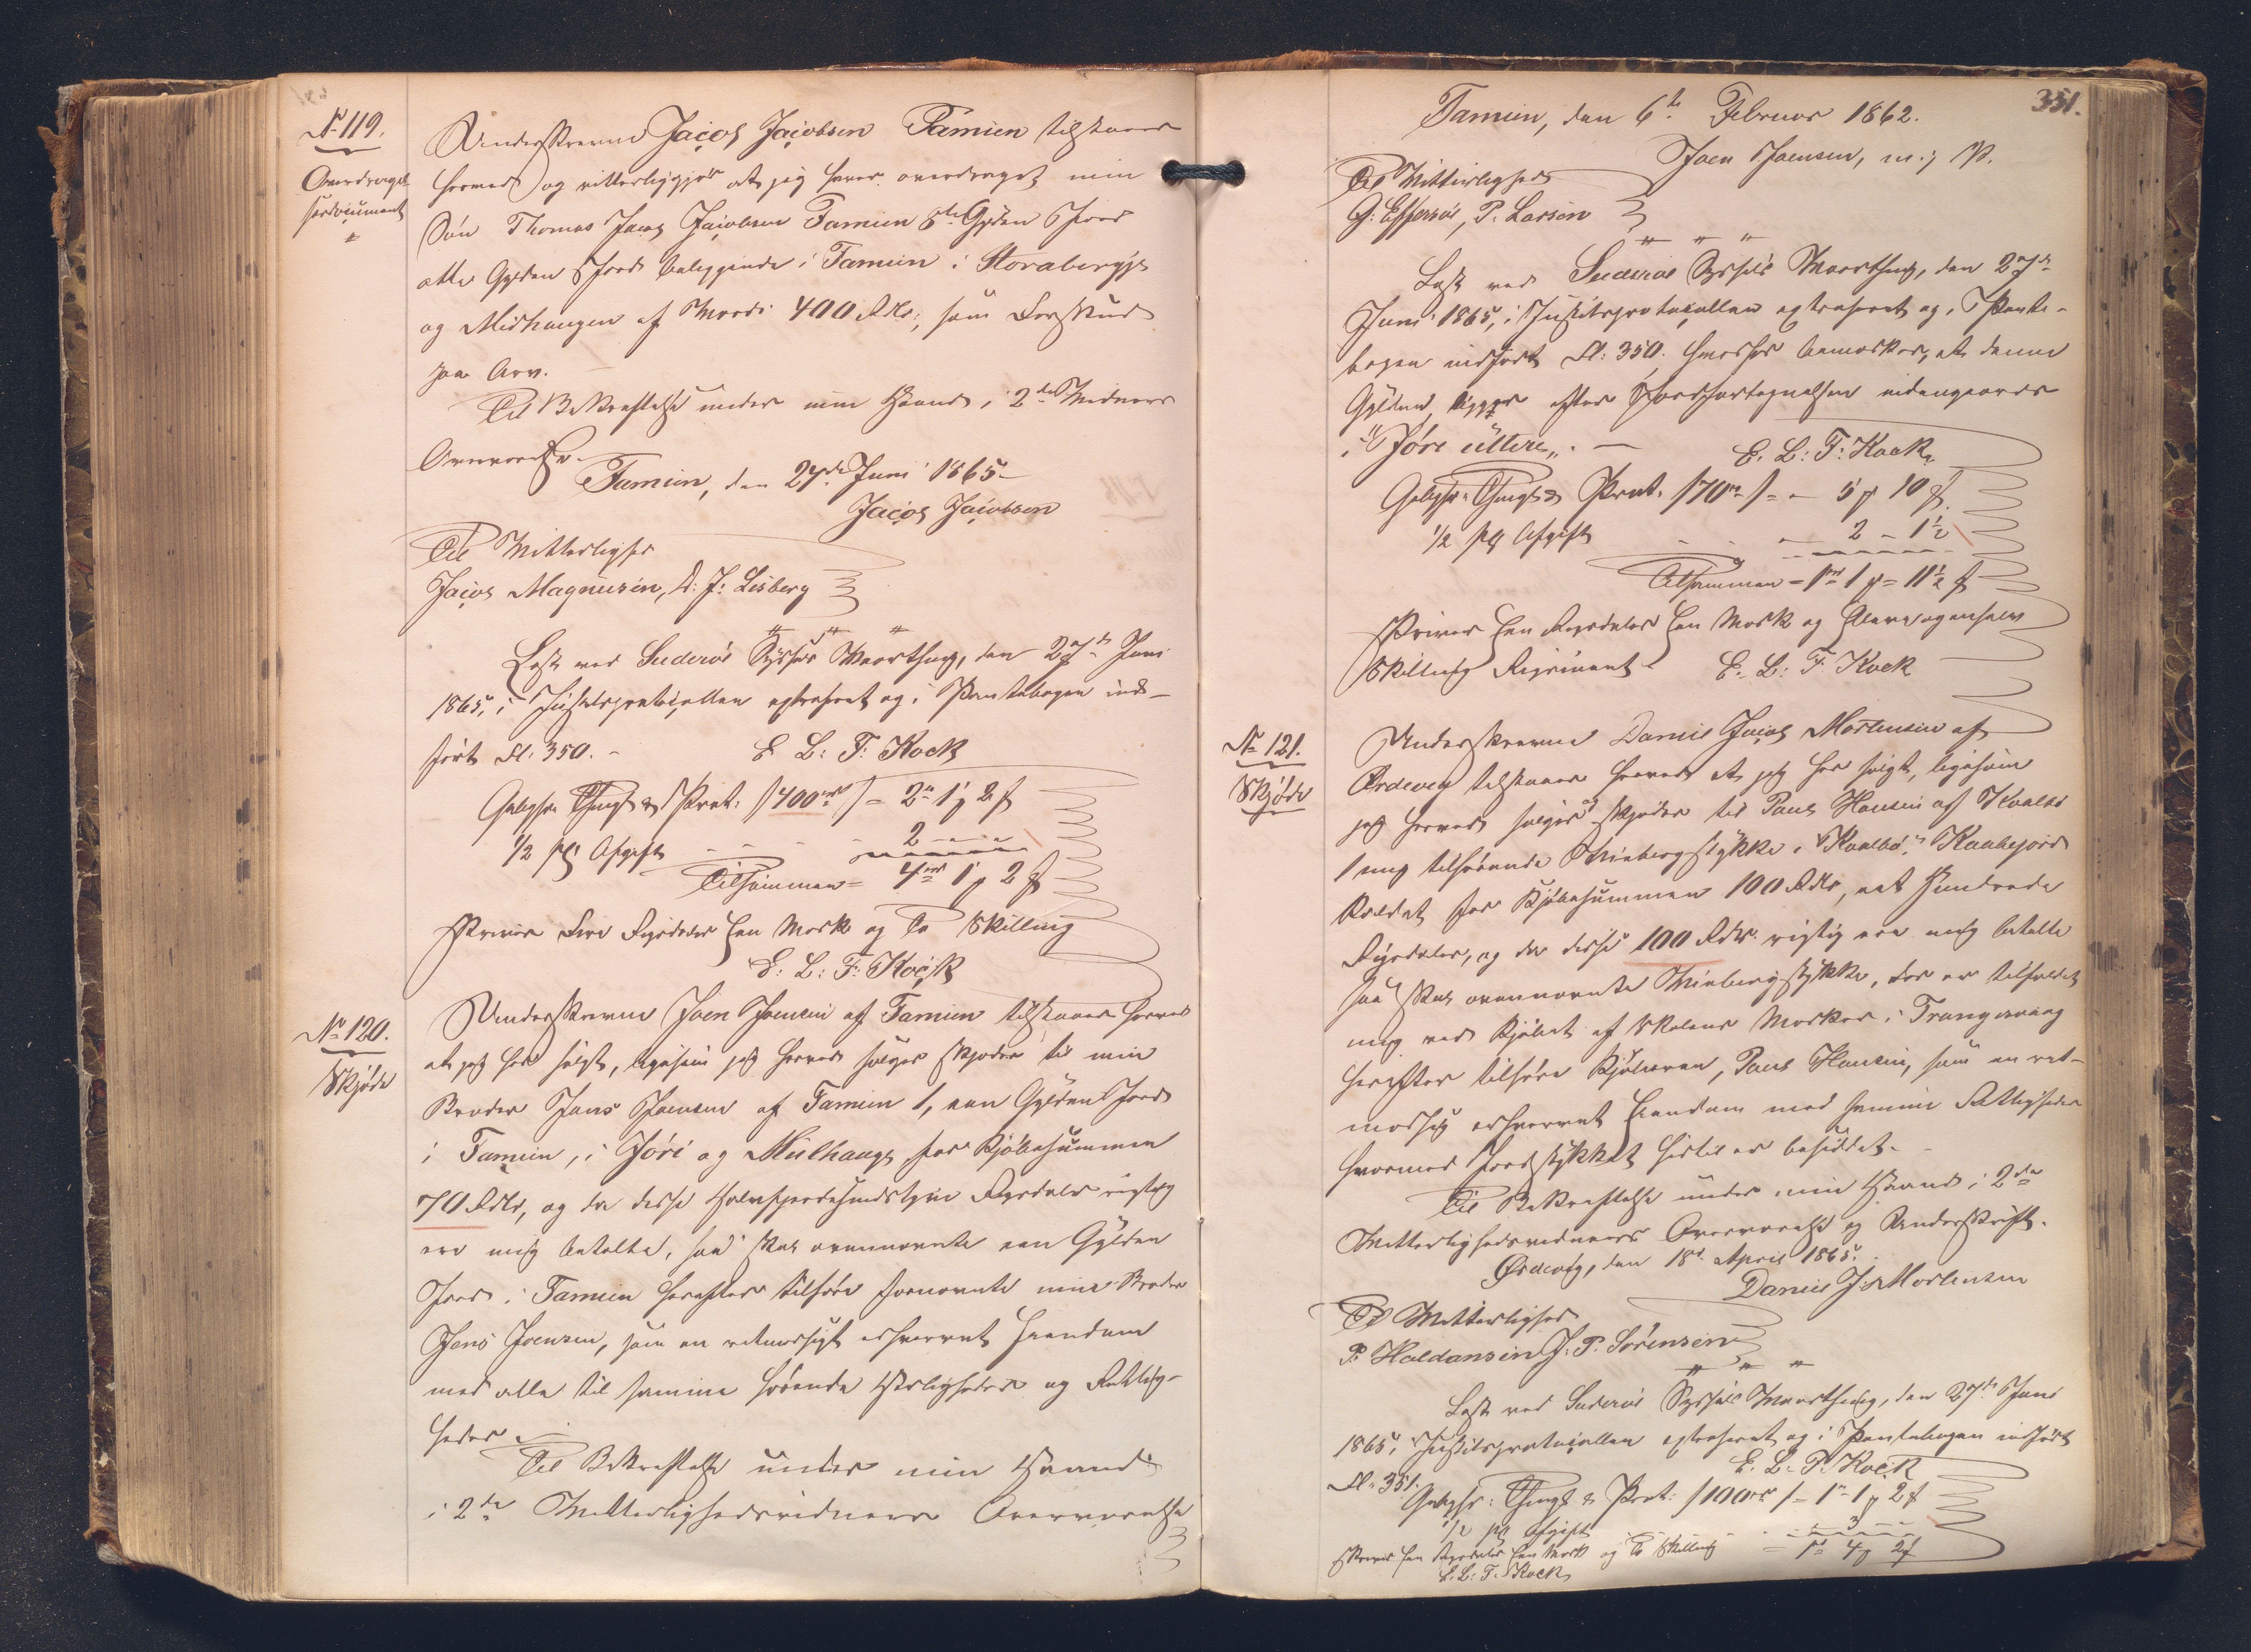 No 119.
Overdragel-
sesdocument
Underskrevne Jacob Jacobsen Famien tilstaaer
herved og vitterliggjør at jeg haver overdraget min
Søn Thomas Jacob Jacobsen Famien 8te Gylden Jord
otte Gylden Jord beliggende i Famien i Storabergje
og Midhaugen af Værdi 400 Rdlr, som Forskud
paa Arv.
Til Bekræftelse under min Haand, i 2de Vidners
Overværelse.
Famien, den 27de Juni 1865.
Jacob Jacobsen
Til Vitterlighed
Jacob Magnusen, D. J. Lisberg
" " "
Læst ved Suderøe Syssels Vaarthing, den 27de Juni
1865, i Justitsprotocollen extraheret og i Pantebogen ind-
ført Fol. 350. -
E. L. F. Kock
Gebyhr: Thingl. & Prot. /400 rd/ = 2 rd 1 # 2 ß
1/2 pCt Afgift - - - 2 - - -
Tilsammen = 4 rd 1 # 2 ß
skriver Fire Rigsdaler Een Mark og To Skilling
E. L. F. Kock
No 120.
Skjøde
Underskrevne Joen Joensen af Famien tilstaaer herved
at jeg har solgt, ligesom jeg herved sælger skjøder til min
Broder Jens Joensen af Famien 1, een Gylden Jord
i Famien, i Jóri og Mulhauge for Kjøbesummen
70 Rdlr, og da disse Halvfjerdesindstyve Rigsdaler rigtig
ere mig betalte, saa skal ovennævnte een Gylden
Jord i Famien herefter tilhøre fornævnte min Broder
Jens Joensen, som en retmæssigt erhvervet Eiendom
med alle til samme hørende Herligheder og Rettig-
heder.
Til Bekræftelse under min Haand
i 2de Vitterlighedsvidners Overværelse
351.
Famien, den 6te Februar 1862.
Joen Joensen, m. f. P.
Til Vitterlighed
G. Effersøe, P. Larsen
" " "
Læst ved Suderøe Syssels Vaarthing, den 27de
Juni 1865, i Justitsprotocollen extraheret og i Pante-
bogen indført Fol. 350. hvorhos bemærkes, at denne
Gylden ligger efter Jordfortegnelsen indengaards
i "Jóri úttere". -
E. L. F. Kock
Gebyhr: Thingl. & Prot. /70 rd/ = - 5 # 10 ß
1/2 pCt Afgift - - - 2 - 1 1/2
Tilsammen = 1 rd 1 # = 11 1/2 ß
skriver Een Rigsdaler Een Mark og Elleve og en halv
Skilling Rigsmønt. E. L. F. Kock
No 121.
Skjøde
Underskrevne Daniel Jacob Mortensen af
Ørdevig tilstaaer herved at jeg har solgt, ligesom
jeg herved sælger og skjøder til Poul Hansen af Kvalbø
1 mig tilhørende Træbergstykke i "Kvalbø", Kaabejord
kaldet for Kjøbesummen 100 Rdlr, eet Hundrede
Rigsdaler, og da disse 100 Rdlr. rigtig ere mig betalte
saa skal ovennævnte stykke, der er tilfaldet
mig ved Kjøbet af Skolens Marker i Trangisvaag
herefter tilhøre Kjøberen, Poul Hansen, som en ret-
mæssig erhvervet Eiendom med samme Rettigheder
hvormed Jordstykket hidtil er besiddet. -
Til Bekræftelse under min Haand i 2de
Vitterlighedsvidners Overværelse og Underskrift.
Ørdevig, den 18de April 1865.
Daniel J. Mortensen
Til Vitterlighed
P. Haldansen J. P. Sørensen
" " "
Læst ved Suderøe Syssels Vaarthing, den 27de Juni
1865, i Justitsprotocollen extraheret og i Pantebogen indført
Fol. 351.
E. L. F. Kock
Gebyhr: Thingl. & Prot. /100 rd/ = 1 rd 1 # 2 ß
1/2 pCt Afgift - - 3 - -
skriver Een Rigsdaler Mark og To Skilling = 1 rd 4 # 2 ß
E. L. F. Kock